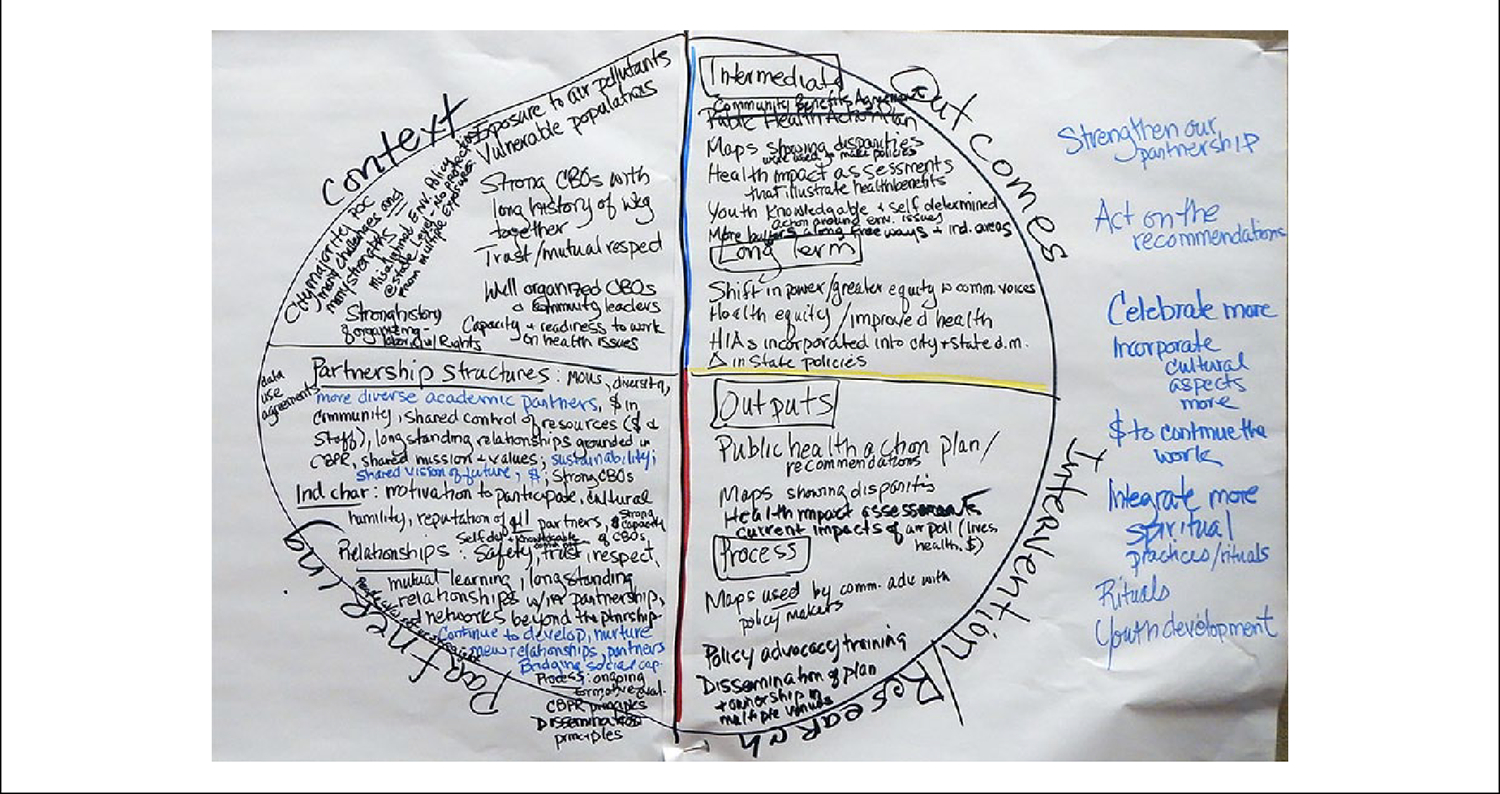 Context
Exposure to air pollutants
Vulnerable populations
Strong CBOs with
long history of wkg
together
Trust/mutual respect
Well organized CBOs
& community leaders
Capacity + readiness to work
on health issues
City majority POC
many challenges and
many strengths
Misalignmnt Env. Policy
@ state level - No protections
from multiple exposures
Strong history
of organizing -
labor, civil Rights
Outcomes
Intermediate
Community Benefits Agreement
Public Health Action Plan
Maps showing disparities
were used to make policies
Health impact assessments
that illustrate health benefits
Youth knowledgable + self determined
action around env. issues
More buffers along freeways + ind. areas
Long Term
Shift in power/greater equity to comm. voices
Health equity/improved health
HIAs incorporated into city + state d.m.
Δ in State policies
Partnership Structures: MOUs, diversity,
data
use
agreements
more diverse academic partners, $ in
community, shared control of resources ($ &
Staff), longstanding relationships grounded in
CBPR, shared mission + values; sustainability;
shared vision of future, $; Strong CBOs
Ind char: motivation to participate, cultural
humility, reputation of all partners,
Strong
capacity
of CBOs
Relationships: Safety, trust, respect,
mutual learning, longstanding
relationships w/in partnership,
networks beyond the ptnrship
Continue to develop, nurture
new relationships, partners
Bridging social cap.
Process: ongoing
formative eval.
CBPR principles
Dissemination
principles
Partnering
Outputs
Public health action plan/
recommendations
Maps showing disparities
Health impact assessments
current impacts of air poll (lives,
health, $)
Process
Maps used by comm. adv with
policy makers
Policy advocacy training
Dissemination of plan
+ ownership in
multiple venues
Intervention/Research
Strengthen our
partnership
Act on the
recommendations
Celebrate more
Incorporate
cultural
aspects
more
$ to continue the
work
Integrate more
spiritual
practices/rituals
Rituals
Youth development